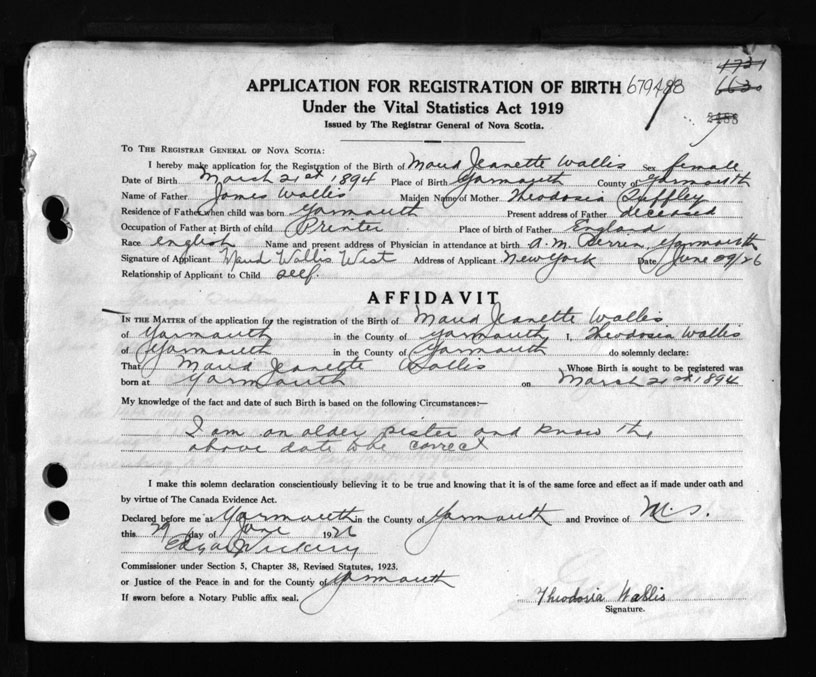 APPLICATION FOR REGISTRATION OF BIRTH 679488
1731
6630
2488
Under the Vital Statistics Act 1919
Issued by The Registrar General of Nova Scotia.
TO THE REGISTRAR GENERAL OF NOVA SCOTIA:
I hereby make application for the Registration of the Birth of Maud Jeanette Wallis Sex female
Date of Birth March 21st 1894 Place of Birth Yarmouth County of Yarmouth
Name of Father James Wallis Maiden Name of Mother Theodosia
Residence of Father when child was born Yarmouth Present address of Father deceased
Occupation of Father at Birth of child Printer Place of birth of Father England
Race English Name and present address of Physician in attendance at birth A. M. Perrin, Yarmouth
Signature of Applicant Maud Wallis West Address of Applicant New York Date June 29/26
Relationship of Applicant to Child self.
AFFIDAVIT
IN THE MATTER of the application for the registration of the Birth of Maud Jeanette Wallis
of Yarmouth in the County of Yarmouth I, Theodosia Wallis
of Yarmouth in the County of Yarmouth do solemnly declare:
That Maud Jeanette Wallis Whose Birth is sought to be registered was
born at Yarmouth on March 21st 1894
My knowledge of the fact and date of such Birth is based on the following Circumstances:—
I am an older sister and know the
above date to be correct
I make this solemn declaration conscientiously believing it to be true and knowing that it is of the same force and effect as if made under oath and
by virtue of The Canada Evidence Act.
Declared before me at Yarmouth in the County of Yarmouth and Province of N.S.
this 29 day of June 1926
Edgar Vickery
Commissioner under Section 5, Chapter 38, Revised Statutes, 1923.
or Justice of the Peace in and for the County of Yarmouth
If sworn before a Notary Public affix seal.
Theodosia Wallis
Signature.